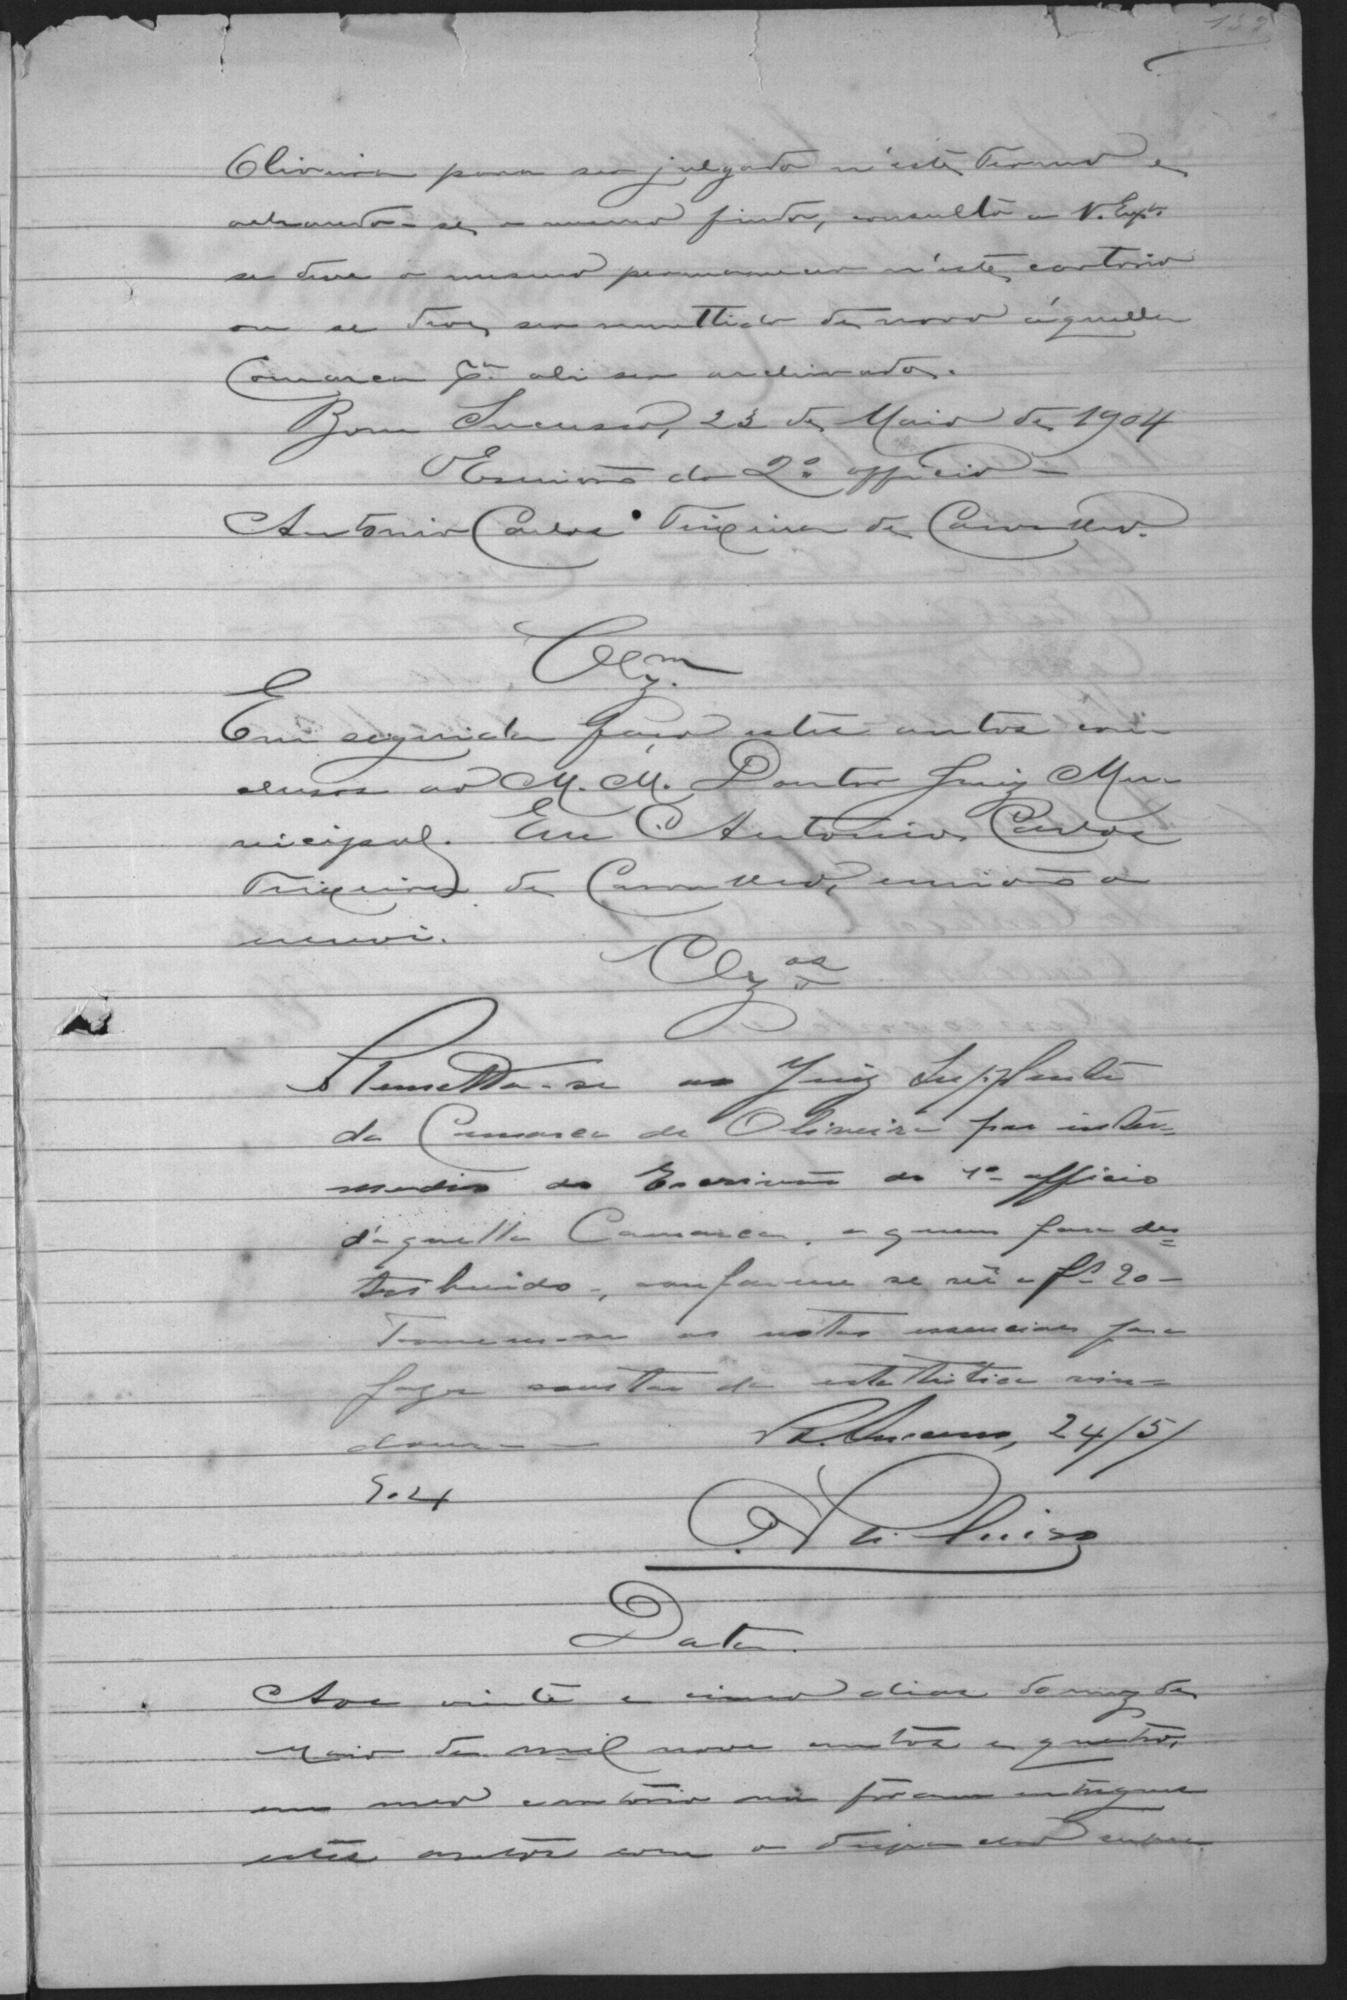 Oliveira para ser julgado n'este Termo e
achando-se o mesmo findo, consulto a V. Exª
se deve o mesmo permanecer n'este cartorio
ou se deve ser remettido de novo áquella
Comarca pª ali ser archivado.
Bom Successo, 23 de Maio de 1904
O Escrivão do 2º officio
Antonio Carlos Teixeira de Carvalho.
Clzm
Em seguida faço estes autos con-
clusos ao M. M. Doutor Juiz Mu-
nicipal. Eu Antonio Carlos
Teixeira de Carvalho, escrivão o
escrevi.
Clzos
Remetta-se ao Juiz Supplente
da Comarca de Oliveira por inter-
medio do Escrivão do 1º officio
d'aquella Comarca, a quem fora des-
tribuido, conforme se vê a fs 20-
Tomem-se as notas essenciaes para
fazer constar da estathistica vin-
doura
B. Successo, 24/5/
904
Data.
Aos vinte e cinco dias do mez de
Maio de mil nove centos e quatro,
em meo cartorio me fôram entregues
estes autos com o despacho supra